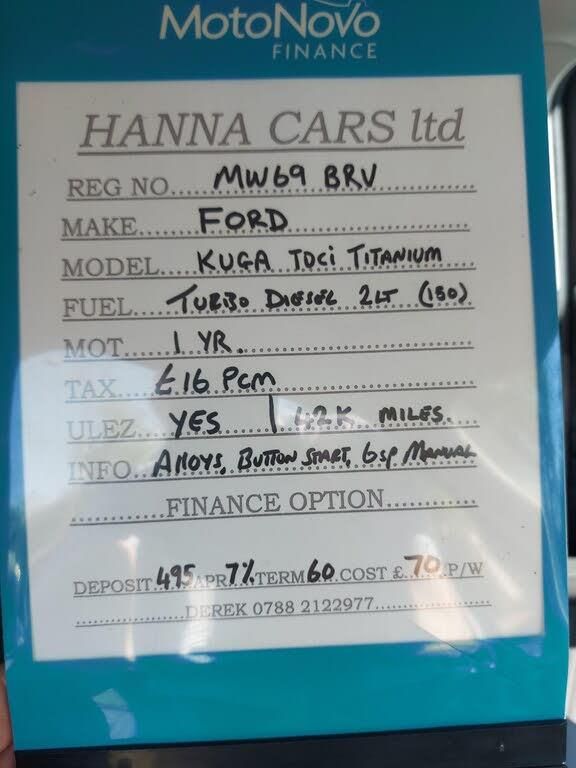 MotoNovo
FINANCE
HANNA CARS ltd
REG NO.....MW69 BRV.............
MAKE.......FORD.......................
MODEL....KUGA TDCi TITANIUM
FUEL....TURBO DIESEL 2LT (150).
MOT.......1 YR..............................
TAX....£16 PCM........................
ULEZ....YES | 42K MILES.
INFO..Alloys, BUTTON START, 6sp MANUAL
..............FINANCE OPTION.............
DEPOSIT.495.APR.7%.TERM 60.COST £.70.P/W
...............DEREK 0788 2122977................